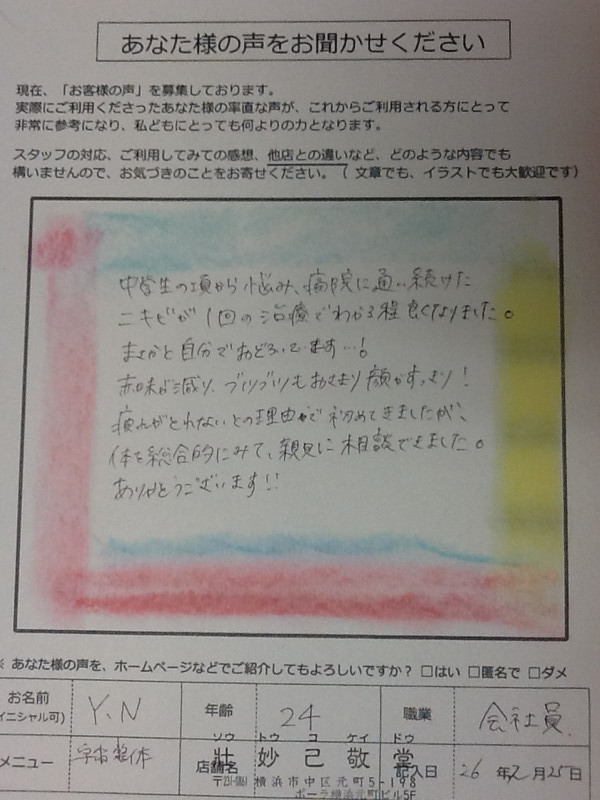 あなた様の声をお聞かせください
現在、「お客様の声」を募集しております。
実際にご利用くださったあなた様の率直な声が、これからご利用される方にとって
非常に参考になり、私どもにとっても何よりの力となります。
スタッフの対応、ご利用してみての感想、他店との違いなど、どのような内容でも
構いませんので、お気づきのことをお寄せください。（ 文章でも、イラストでも大歓迎です）
中学生の頃から悩み、病院に通い続けた
ニキビが1回の治療でわかる程良くなりました。
まさかと自分でおどろいています…!
赤味が減り、ブツブツもおさまり顔がすっきり!
疲れがとれないとの理由で初めてきましたが、
体を総合的にみて、親身に相談できました。
ありがとうございます!!
※ あなた様の声を、ホームページなどでご紹介してもよろしいですか？ □はい □匿名で □ダメ
お名前 Y.N 年齢 24 職業 会社員
(イニシャル可)
ソウ トウ コ ケイ ドウ
メニュー 宇宙整体 店舗名 壮 妙 己 敬 堂 記入日 26年2月25日
横浜市中区元町5-198
ポーラ横浜元町ビル5F